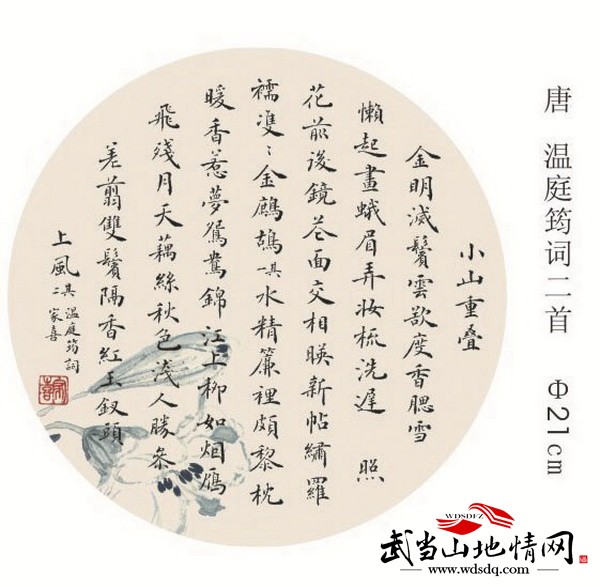 唐 温庭筠词二首 Φ21cm
小山重叠
金明滅鬢雲欲度香腮雪
懶起畫蛾眉弄妆梳洗遲 照
花前後鏡花面交相暎新帖繡羅
襦雙〻金鷓鴣 其一 水精簾裡頗黎枕
暖香惹夢鴛鴦錦江上柳如烟鴈
飛殘月天藕絲秋色淺人勝參
差翦雙鬢隔香紅玉釵頭
上風 其二 温庭筠詞 家喜
WDSDFZ
武当山地情网
www.wdsdq.com